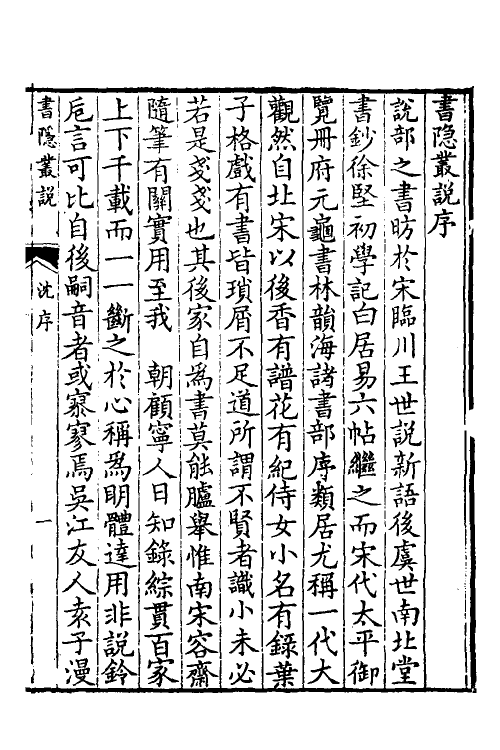 書隐叢說序
說部之書昉於宋臨川王世說新語後虞世南北堂
書鈔徐堅初學記白居易六帖繼之而宋代太平御
覽册府元龜書林韻海諸書部序類居尤稱一代大
觀然自北宋以後香有譜花有紀侍女小名有錄葉
子格戲有書皆瑣屑不足道所謂不賢者識小未必
若是戔戔也其後家自爲書莫能臚舉惟南宋容齋
隨筆有關實用至我　朝顧寧人日知錄綜貫百家
上下千載而一一斷之於心稱爲明體達用非說鈴
卮言可比自後嗣音者或寥寥焉吳江友人袁子漫
書隐叢說
沈序
一